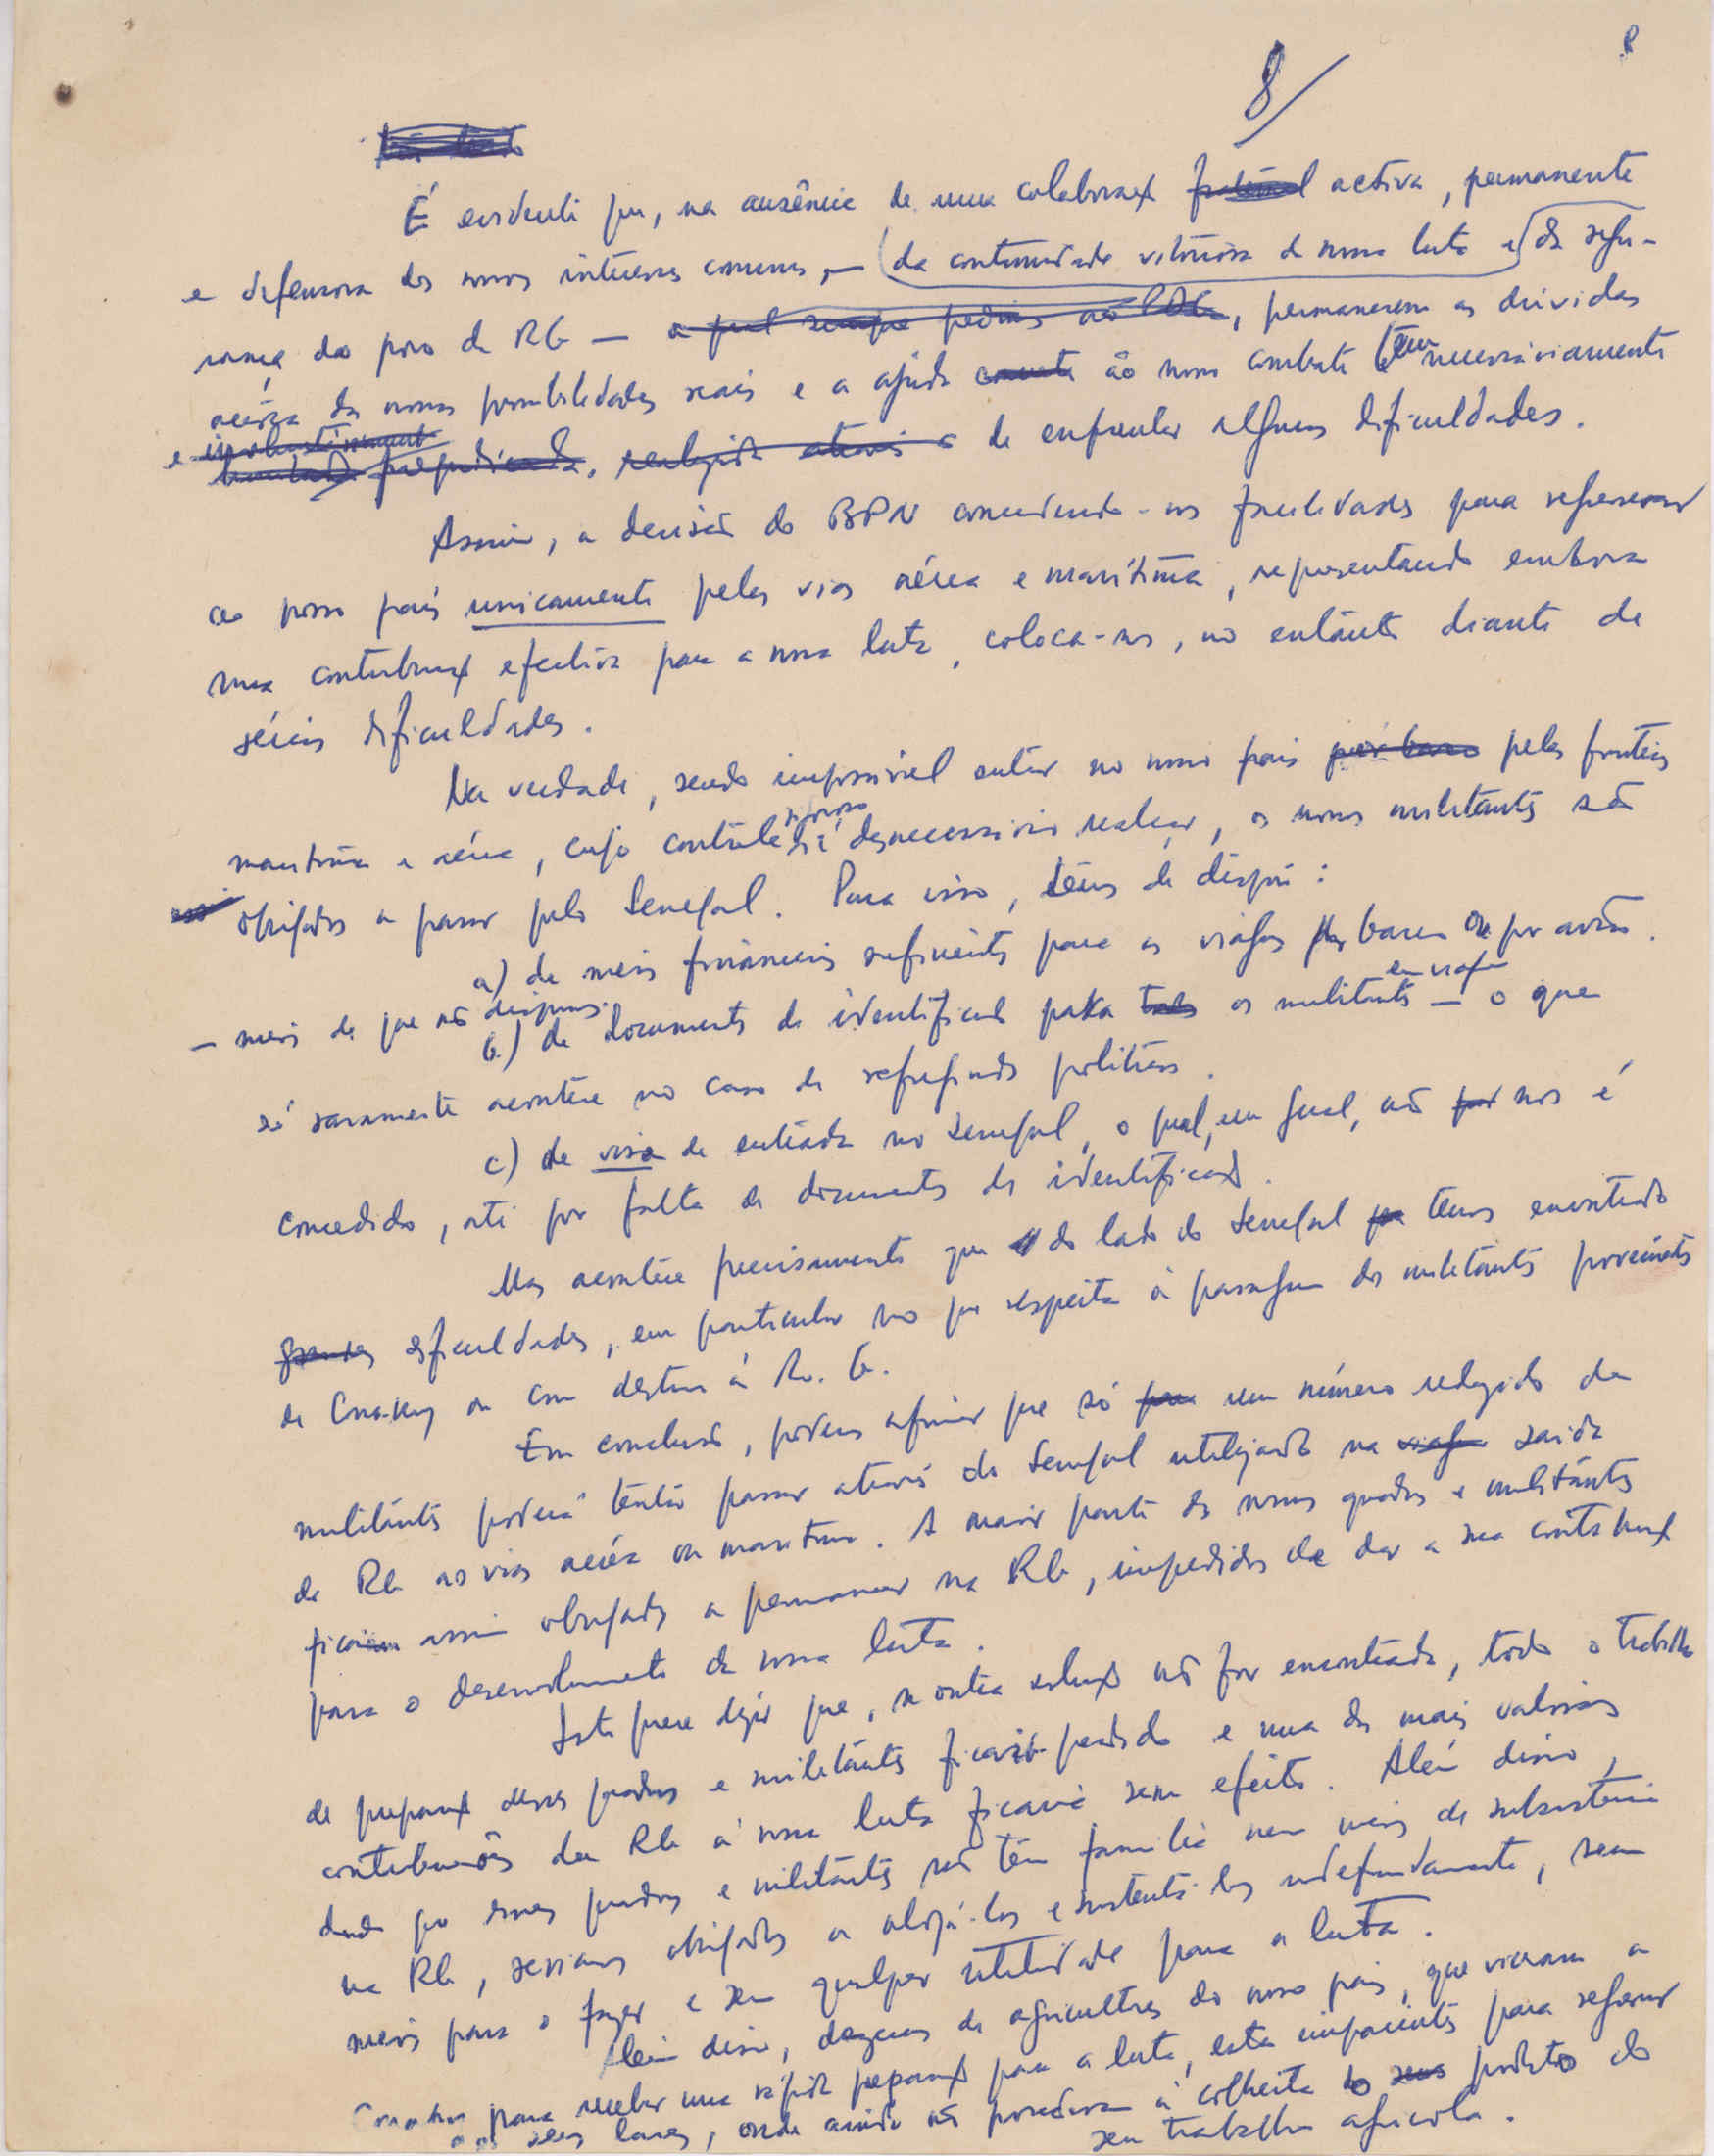 8/
É evidente que, na ausência de uma colaboração fraternal activa, permanente
e defensora dos nossos interesses comuns, — da continuidade vitoriosa da nossa luta e da segu-
rança do povo da RG — a qual sempre pedimos ao PDG, permanecem as dúvidas
acêrca das nossas possibilidades reais e a ajuda concreta ao nosso combate tem necessàriamente
e prejudicada, realizada através de enfrentar algumas dificuldades.
Assim, a decisão do BPN concedendo-nos facilidades para regressar
ao nosso país unicamente pelas vias aérea e marítima, representando embora
uma contribuição efectiva para a nossa luta, coloca-nos, no entanto diante de
sérias dificuldades.
Na verdade, sendo impossível entrar no nosso país por barco pelas fronteiras
marítima e aérea, cujo contrôle rigoroso é desnecessário realçar, os nossos militantes são
obrigados a passar pelo Senegal. Para isso, têm de dispôr:
a) de meios financeiros suficientes para as viagens por barco ou por avião.
— meios de que não dispomos.
b) de documentos de identificação para todos os militantes em viagem — o que
só raramente acontece no caso de refugiados políticos.
c) de visa de entrada no Senegal, o qual, em geral, não nos é
concedido, até por falta de documentos de identificação.
Mas acontece precisamente que do lado do Senegal temos encontrado
grandes dificuldades, em particular no que respeita à passagem dos militantes provenientes
de Conakry ou com destino à R. G.
Em conclusão, podemos afirmar que só um número reduzido de
militantes poderá tentar passar através do Senegal utilizando na viagem saída
da RG as vias aérea ou marítima. A maior parte dos nossos quadros e militantes
ficariam assim obrigados a permanecer na RG, impedidos de dar a sua contribuição
para o desenvolvimento da nossa luta.
Isto quere dizer que, se outra solução não for encontrada, todo o trabalho
de preparação desses quadros e militantes ficaria perdido e uma das mais valiosas
contribuições da RG à nossa luta ficaria sem efeito. Além disso,
dado que esses quadros e militantes não têm família nem meios de subsistência
na RG, seríamos obrigados a alojá-los e sustentá-los indefinidamente, sem
meios para o fazer e sem qualquer utilidade para a luta.
Além disso, dezenas de agricultores do nosso país, que vieram a
Conakry para receber uma rápida preparação para a luta, estão impacientes para regressar
aos seus lares, onde ainda não procederam à colheita dos seus produtos do
seu trabalho agrícola.